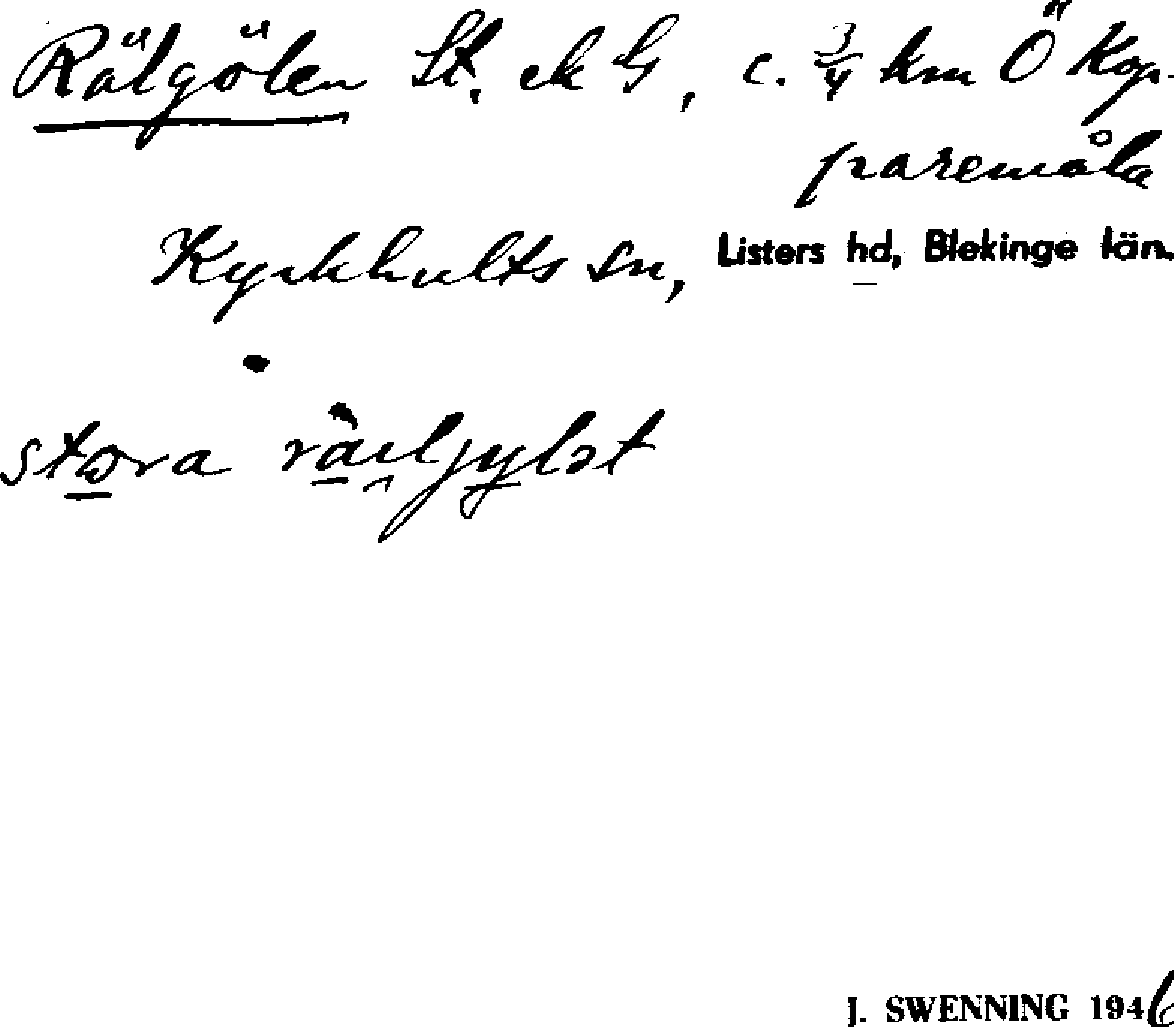 Rälgölen St. ek G, c. 3/4 km Ö Kop-
paremåla
Kyrkhults sn, Listers hd, Blekinge län.
stora
J. SWENNING 1946